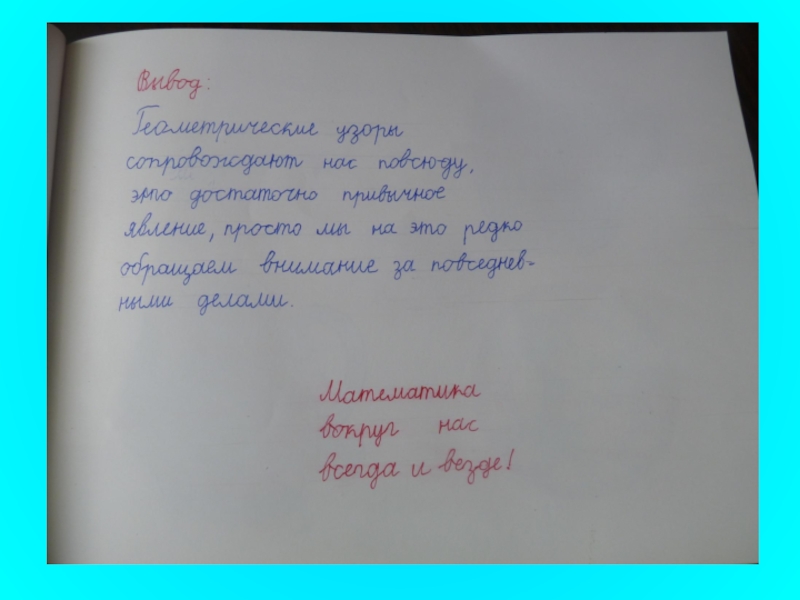 Вывод:
Геометрические узоры
сопровождают нас повсюду,
это достаточно привычное
явление, просто мы на это редко
обращаем внимание за повседнев-
ными делами.
Математика
вокруг нас
всегда и везде!